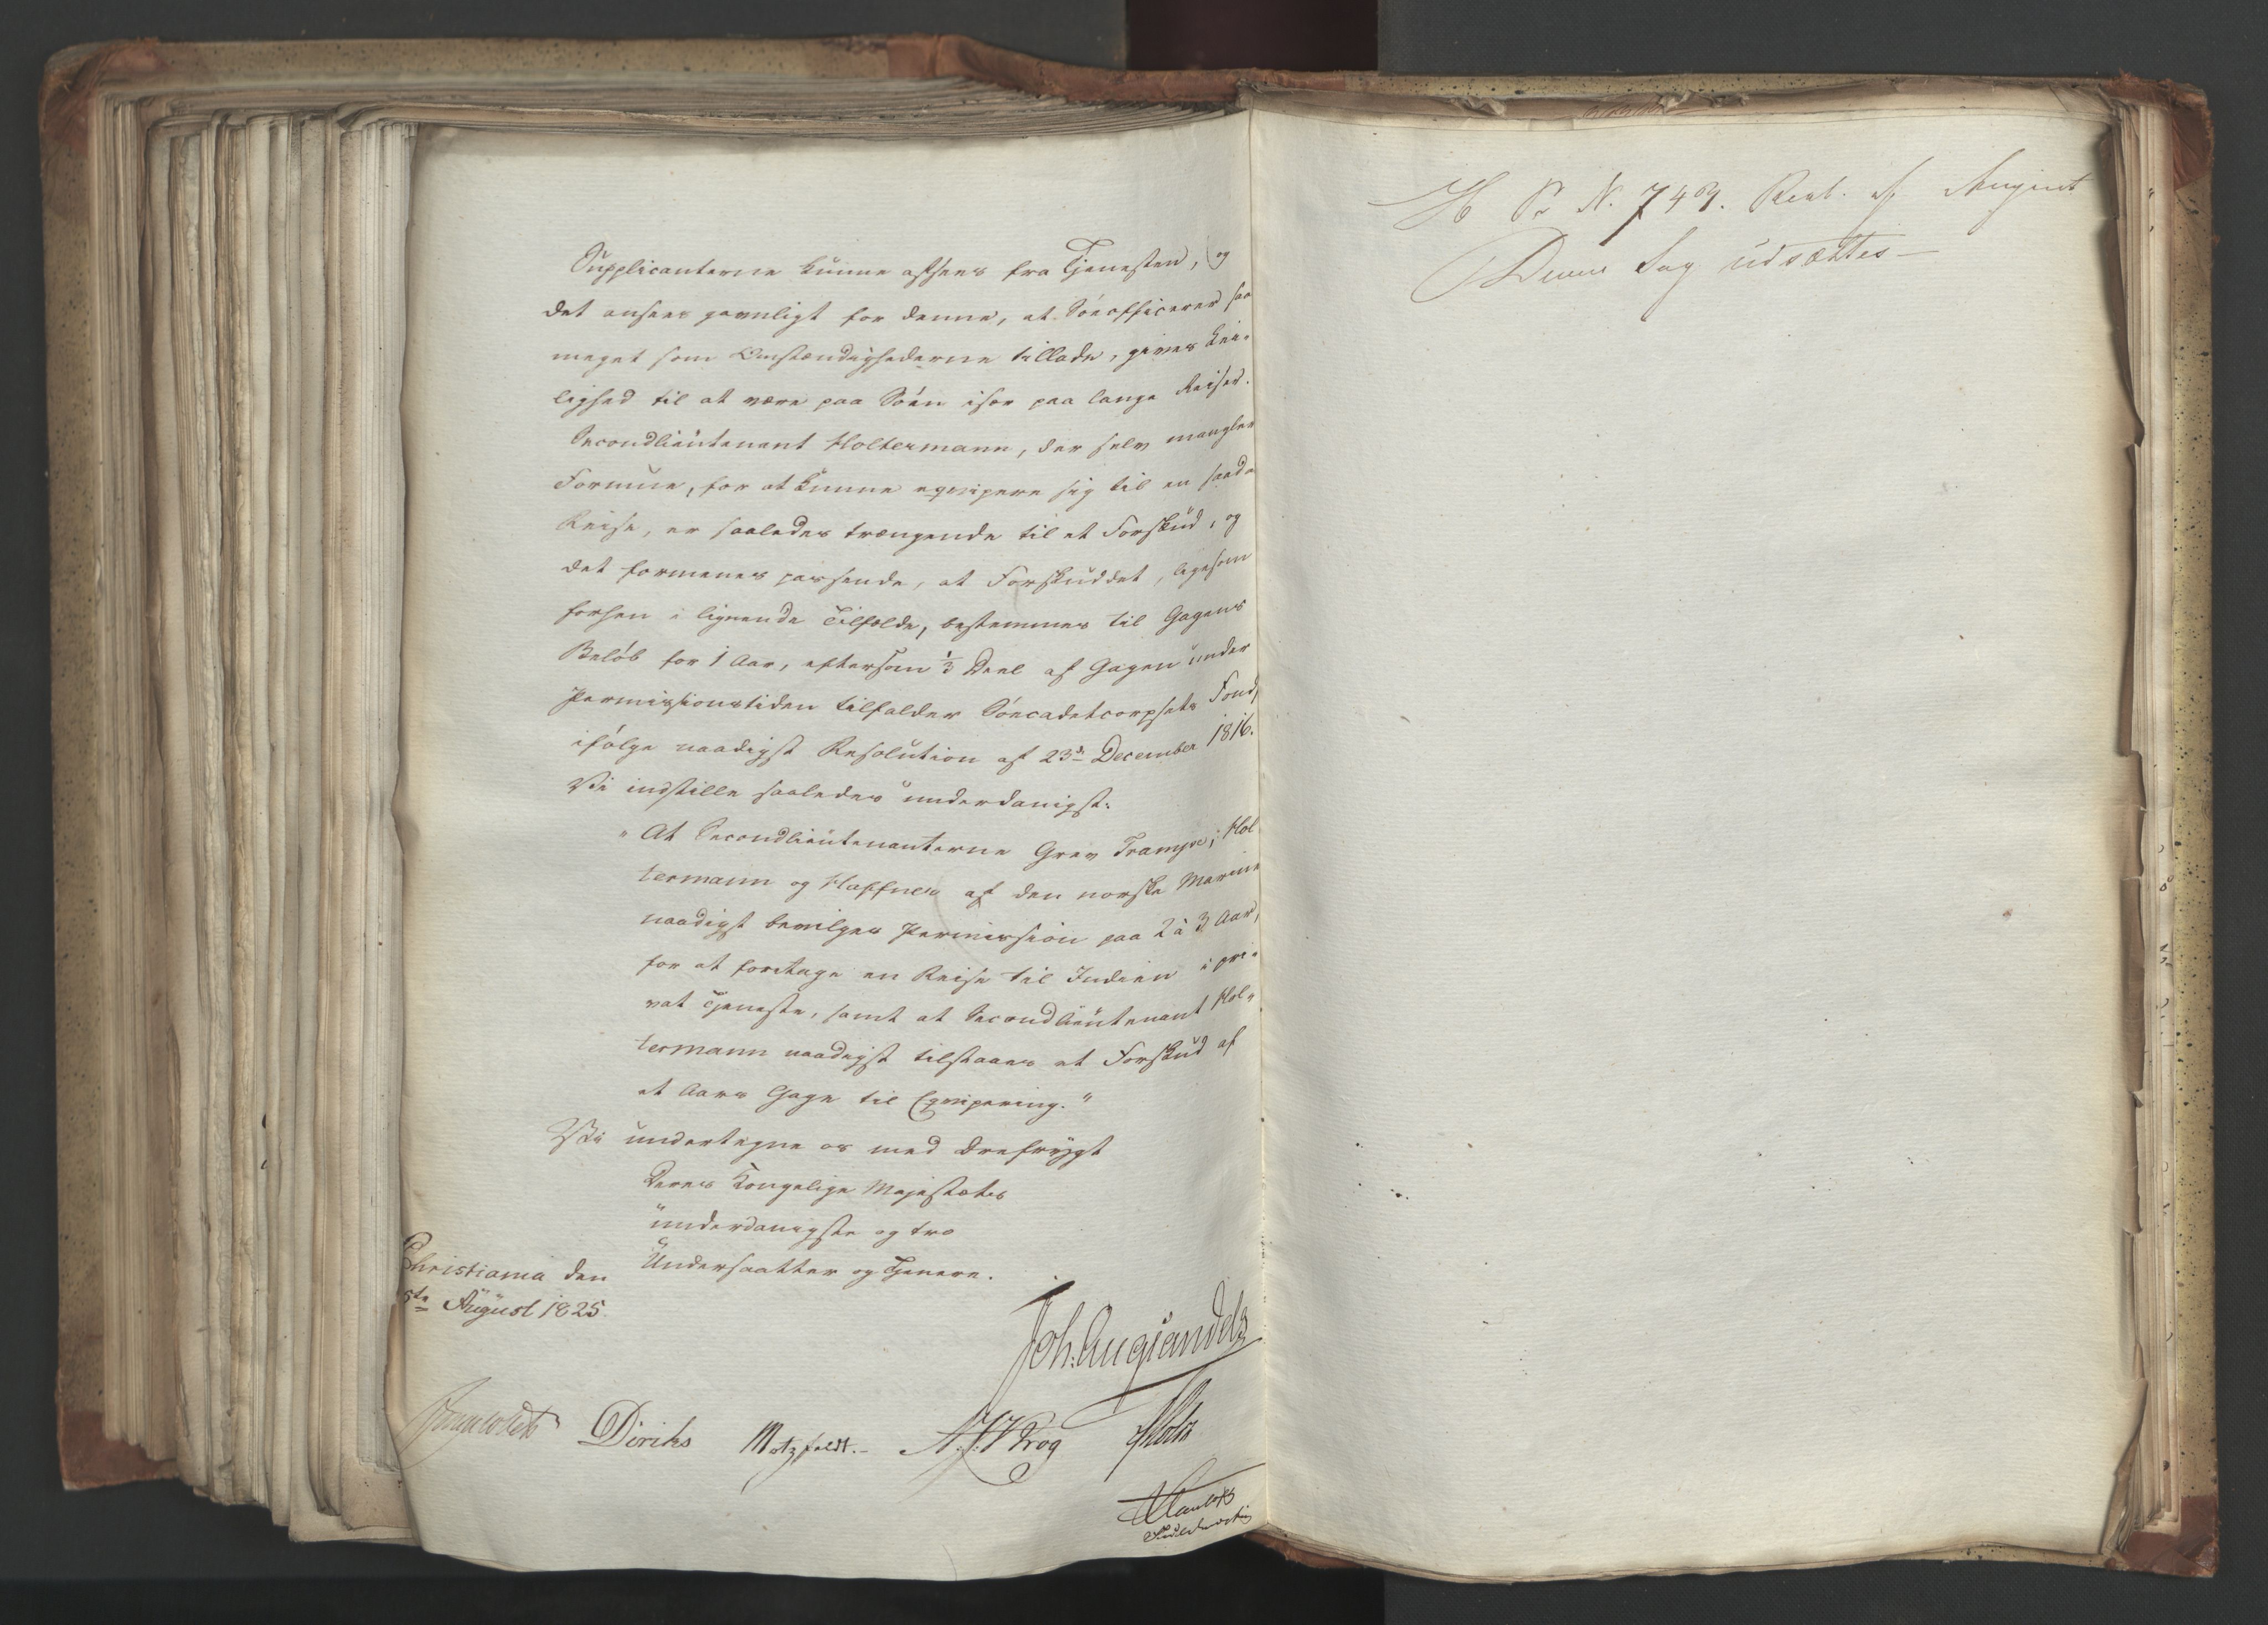 Supplicanterne kunne afsees fra Tjenesten, og
det ansees gavnligt for denne, at Söeofficerer saa
meget som Omstændighederne tillade, gives Lei-
lighed til at være paa Söen især paa lange Reiser.
Secondlieutenant Holtermann, der selv mangler
Formue, for at kunne eqvipere sig til en saadan
Reise, er saaledes trængende til et Forskud, og
det formenes passende, at Forskuddet, ligesom
forhen i lignende Tilfælde, bestemmes til Gagens
Belöb for 1 Aar, eftersom 1/3 Deel af Gagen under
Permissionstiden tilfalder Söecadetcorpsets Fond,
ifölge naadigst Resolution af 23de December 1816.
Vi indstille saaledes underdanigst:
"At Secondlieutenanterne Grev Trampe, Hol-
termann og Haffner af den norske Marine
naadigst bevilges Permission paa 2 à 3 Aar,
for at foretage en Reise til Indien i pri-
vat Tjeneste, samt at Secondlieutenant Hol-
termann naadigst tilstaaes et Forskud af
et Aars Gage til Eqvipering."
Vi undertegne os med Ærefrygt
Deres Kongelige Majestæts
underdanigste og tro
Undersaatter og Tjenere.
Christiania den
5te August 1825.
Joh: Aug: Sandels
Diriks Motzfeldt.- Krog
H N. 743. af August
Denne Sag udsættes